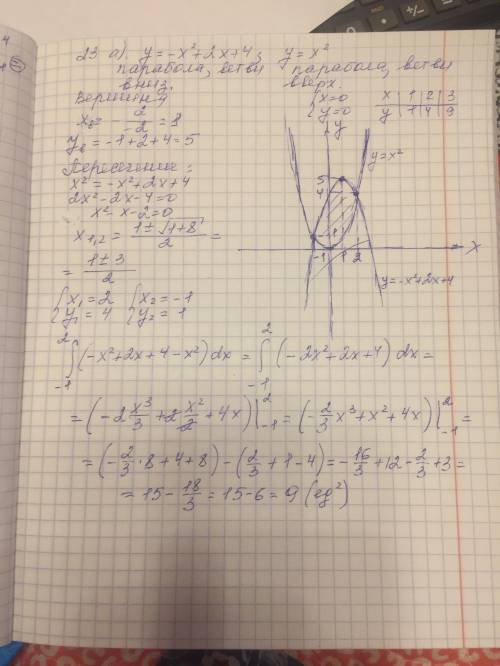 23 а) y = -x²+2x+4; y = x²
парабола, ветви вниз. парабола, ветви вверх.
Вершина { x=0 x | 1 | 2 | 3
x₀ = - 2/-2 = 1 { y=0 y | 1 | 4 | 9
y₀ = -1+2+4 = 5
Пересечение:
x² = -x²+2x+4
2x²-2x-4=0
x²-x-2=0
x₁,₂ = (1±√1+8)/2 =
= (1±3)/2
{ x₁=2 { x₂=-1
{ y₁=4 { y₂=1
y
y=x²
5
4
-1 1 2 x
y=-x²+2x+4
∫₋₁² (-x²+2x+4-x²)dx = ∫₋₁² (-2x²+2x+4)dx =
= (-2 x³/3 + 2 x²/2 + 4x)|₋₁² = (-2/3 x³+x²+4x)|₋₁² =
= (-2/3·8+4+8) - (2/3+1-4) = -16/3+12-2/3+3 =
= 15 - 18/3 = 15-6 = 9 (ед²)